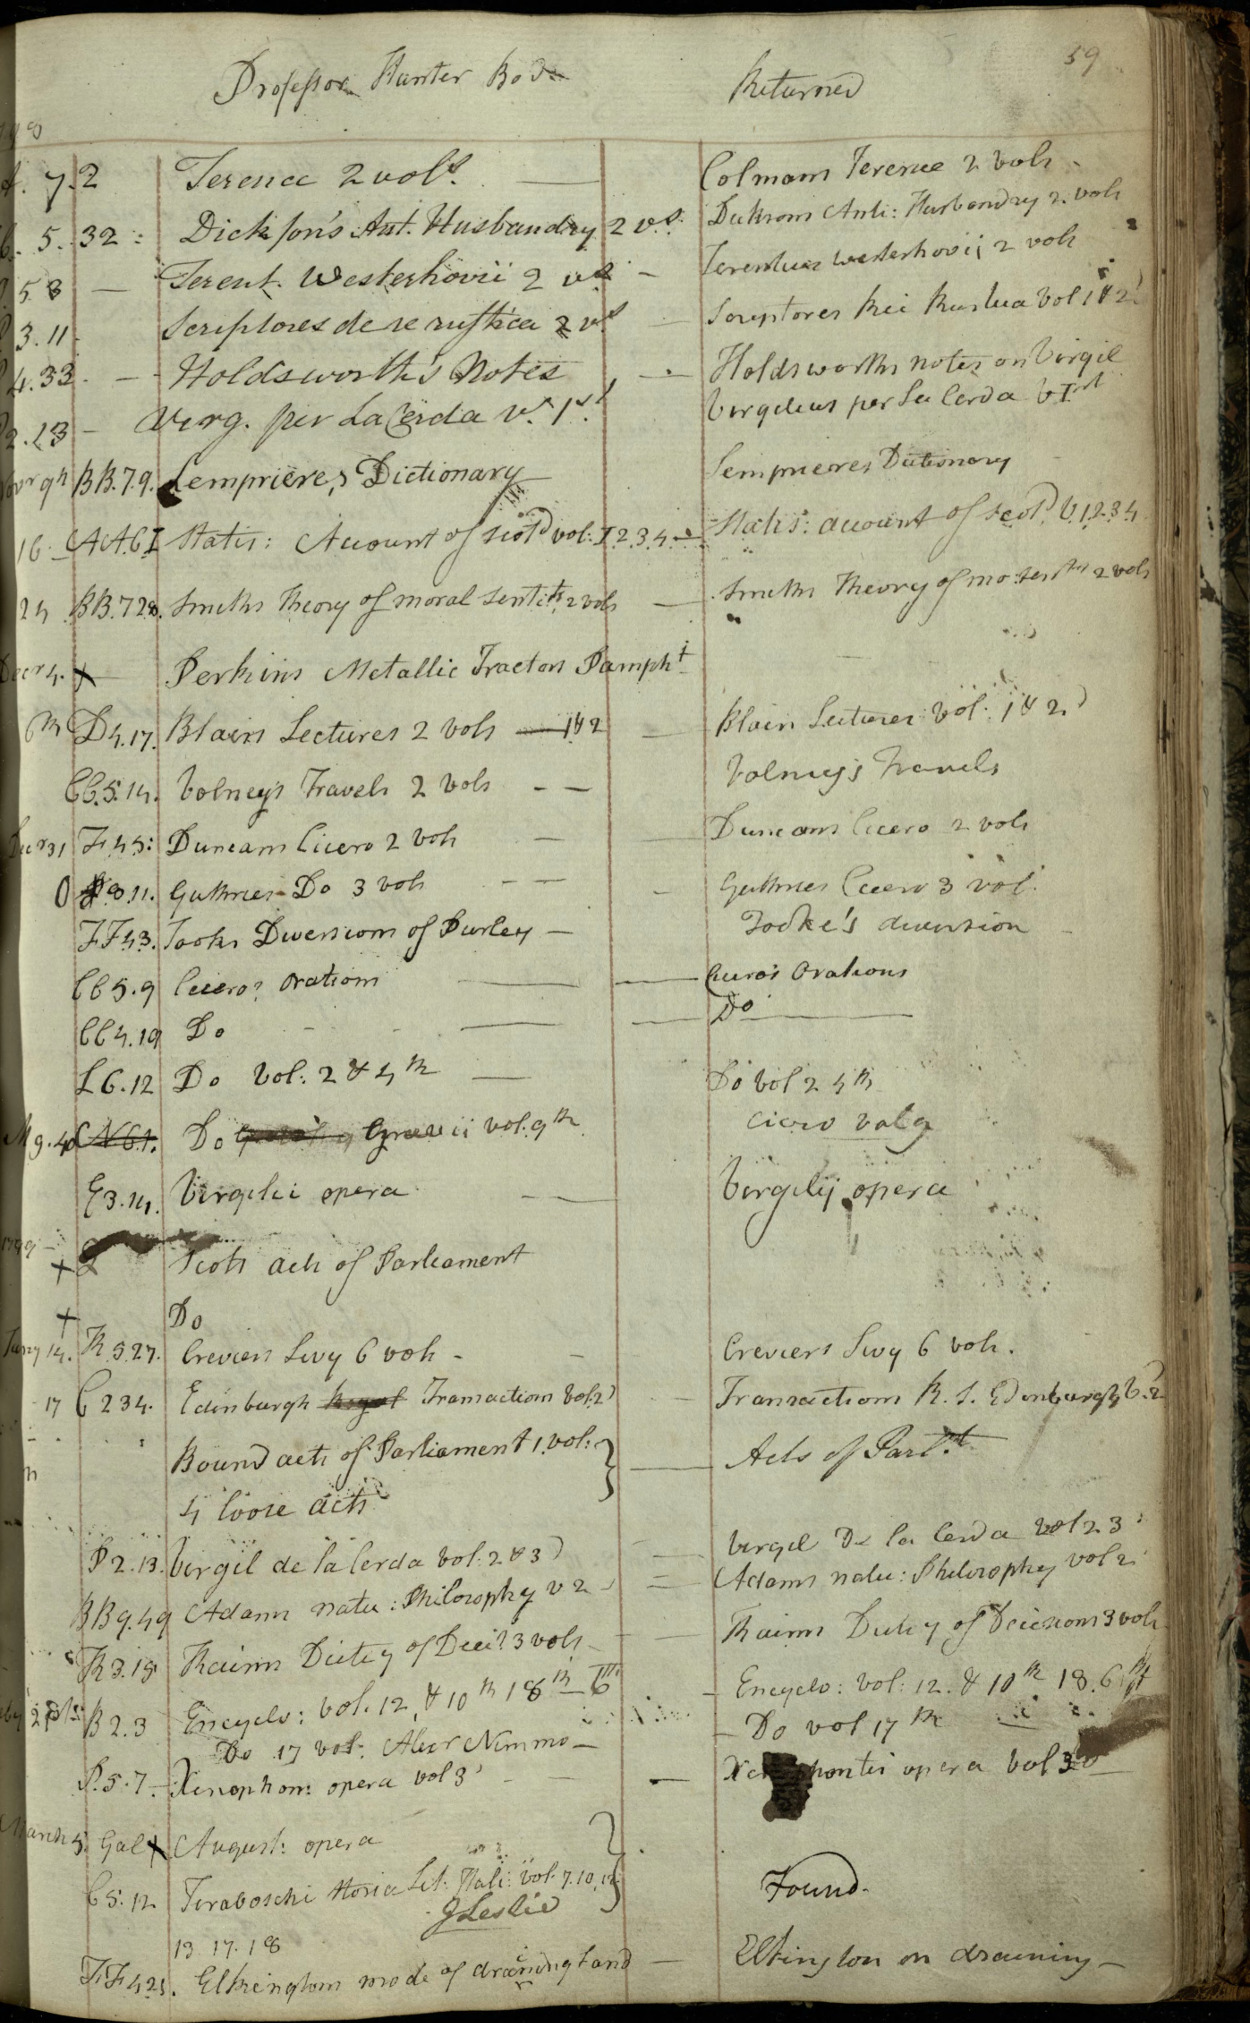 59
Professor Hunter Bod Returned
7.2 Terence 2 vols. Colmans Terence 2 vols
5. 32: Dickson's Ant. Husbandry 2 vs. Dicksons Anti: Husbandry 2. vols
5 8 Terent. Westerhovii 2 vs Terentius westerhovij 2 vols
3.11 Scriptores de re rustica 2 vs Scriptores Rei Rustica Vol 1 & 2d
4.33 Holdsworth's Notes Holdsworths notes on Virgil
2.13 Virg. per La Cerda v. 1st Virgilius per La Cerda V 1st
Novr 9th BB.7.9. Lempriere,s Dictionary Lemprieres Dictionary
16 AA.6.1 Statis: Account of Scotd vol: 1.2.3.4 Statis: account of Scotd. V.1.2.3.4
24 BB.7.28. Smiths Theory of moral Sentits. 2 vols Smiths Theory of mo. Sents 2 vols
Decr 4. x Perkins Metallic Tractors Pampht
6th D4.17. Blairs Lectures 2 vols 1 & 2 Blairs Lectures Vol. 1 & 2d
CC.5.14. Volneys Travels 2 vols Volney's Travels
Decr 31 F.4.5: Duncans Cicero 2 vols Duncans Cicero 2 vols
3.11. Guthries Do 3 vols Guthries Cicero 3 vol.
FF.4.3. Tooks Diversions of Purley Tooke's diversion
CC5.9 Ciceros Orations Cicero's Orations
CC4.19 Do Do
L6.12 Do Vol: 2 & 4th Do Vol 2 4th
M9.40 N6.1. Do Grævii vol. 9th Cicero vol 9
E3.14. Virgilii opera Virgilij opera
1799
x Scots acts of Parliament
x Do
Jany 14. R 5.27. Creviers Livy 6 vols Creviers Livy 6 vols.
17 C 2 34. Edinburgh Royal Transactions Vol: 2d Transactions R. S. Edinburgh V. 2
Bound acts of Parliament 1. vol: Acts of Parlt
4 loose acts
P2.13. Virgil de la Cerda Vol: 2 & 3d Virgil De la Cerda vol 2. 3d
BB9.49 Adams natu: Philosophy v 2 Adams natu: Philosophy vol 2
R3.15 Kaims Dicty of Decis 3 vols Kaims Dicty of Decisions 3 vols
B2.3 Encyclo: Vol. 12, & 10th 18th 6th Encyclo: Vol: 12. & 10th 18. 6th
Do 17 vol: Alexr Nimmo Do vol 17th
P.5.7 Xenophon: opera vol 3d opera vol 3d
March 5 Gal x August: opera
C5.12 Tiraboschi Storia Let: Itali: Vol. 7.10.12 Found.
J Leslie
13 17. 18
FF.4.21. Elkingtons mode of draining Land Elkington on draining